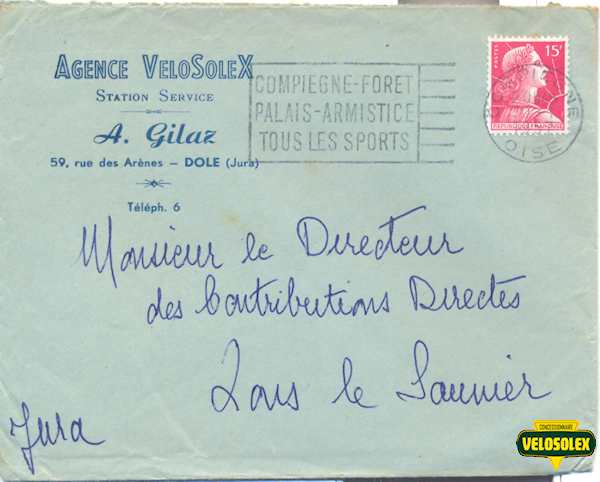 AGENCE VELOSOLEX
STATION SERVICE
A. Gilaz
59, rue des Arènes — DOLE (Jura)
Téléph. 6
COMPIEGNE-FORET
PALAIS-ARMISTICE
TOUS LES SPORTS
15F
POSTES
REPUBLIQUE FRANÇAISE
COMPIEGNE
OISE
Monsieur le Directeur
des Contributions Directes
Lons le Saunier
Jura
CONCESSIONNAIRE
VELOSOLEX